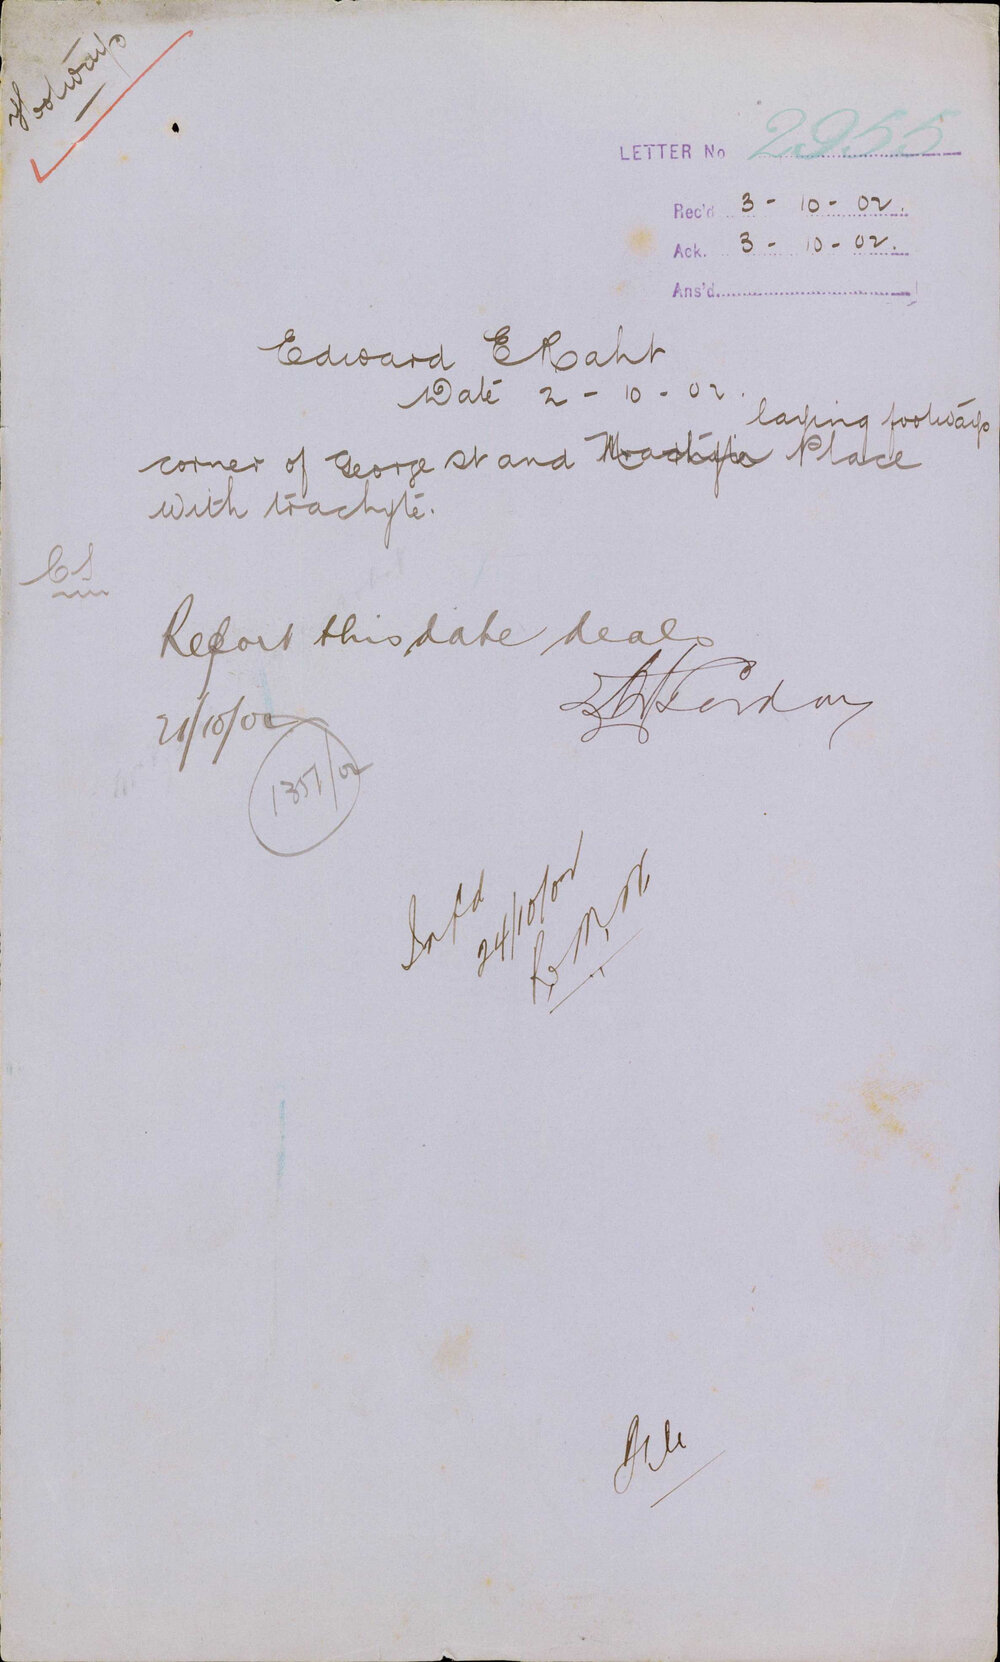 Footways
LETTER No 2955
Rec'd 3 - 10 - 02.
Ack. 3 - 10 - 02.
Ans'd
Edward E Raht
Date 2 - 10 - 02.
laying footways
corner of George St and Place
with trachyte.
CS
Report this date deals
21/10/02
1351/02
Inf'd
24/10/02
File